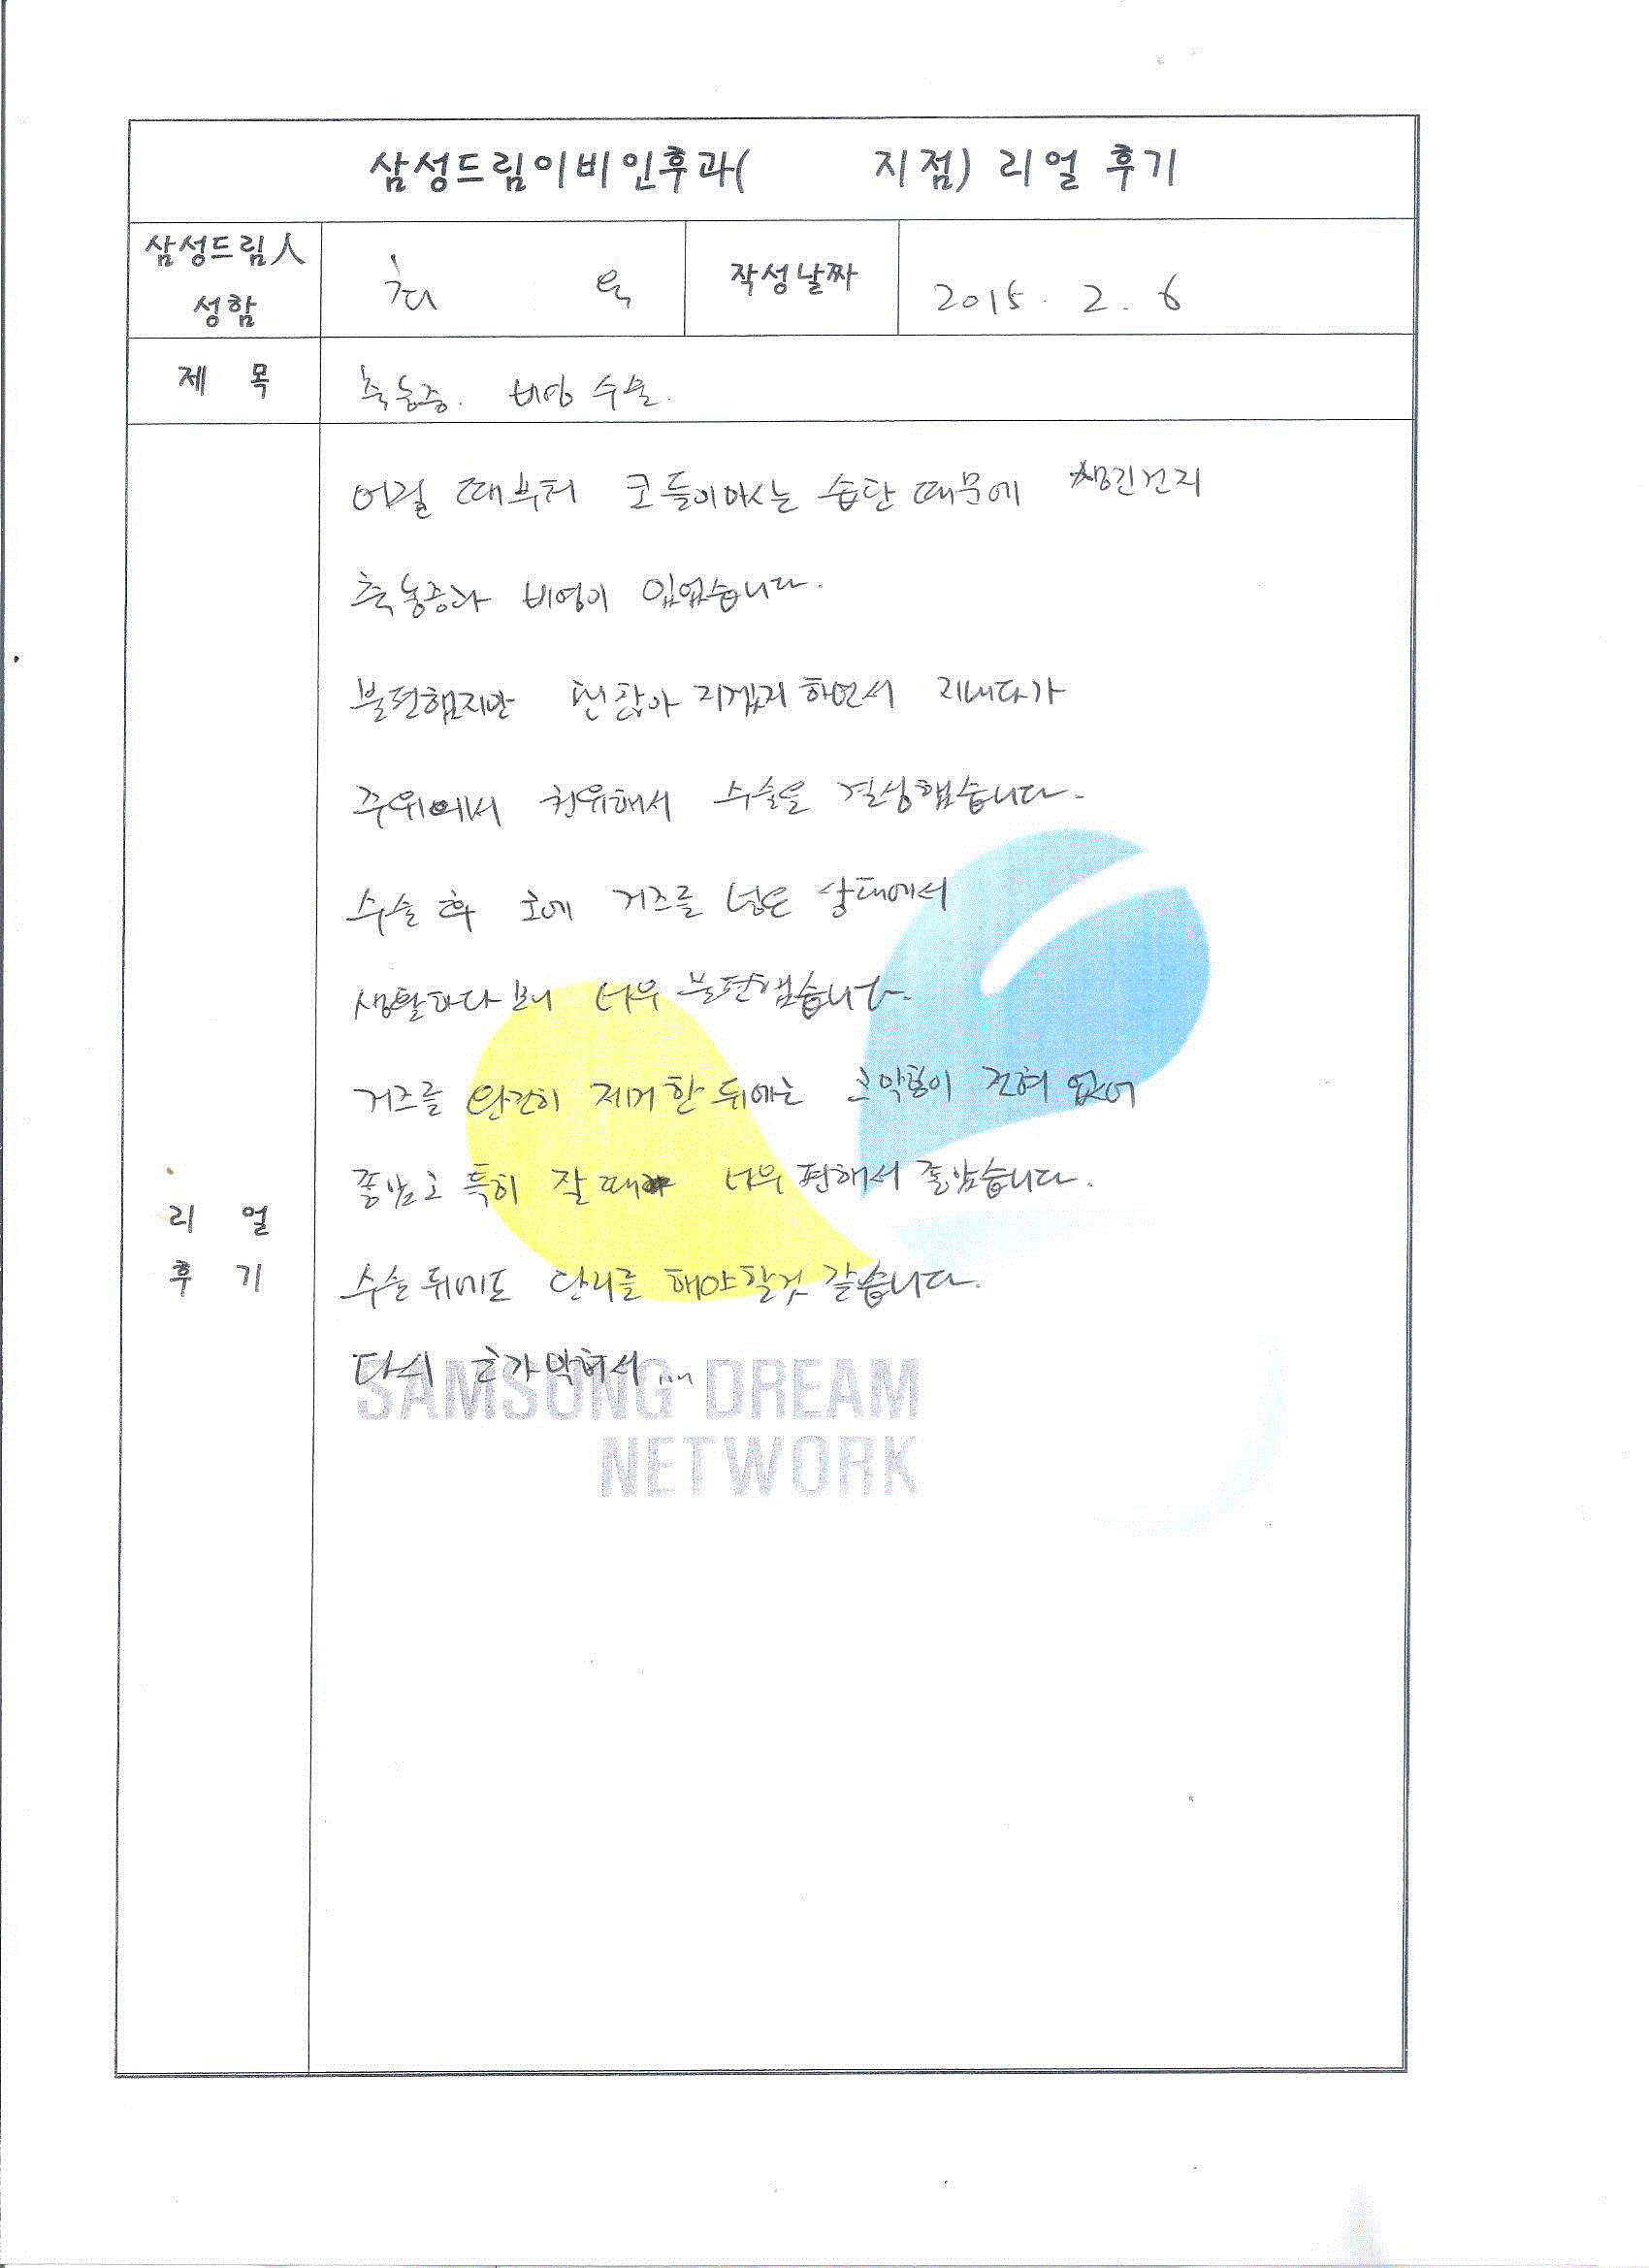 삼성드림이비인후과( 지점) 리얼 후기
삼성드림人
성함
최 욱
작성날짜
2015. 2. 6
제 목
축농증. 비염 수술.
어릴 때부터 코들이마시는 습관 때문에 생긴건지
축농증과 비염이 있었습니다.
불편했지만 괜찮아 지겠지 하면서 지내다가
주위에서 권유해서 수술을 결심했습니다.
수술 후 코에 거즈를 넣은 상태에서
생활하다 보니 너무 불편했습니다.
거즈를 완전히 제거한 뒤에는 코막힘이 전혀 없어
좋았고 특히 잘 때 너무 편해서 좋았습니다.
수술 뒤에도 관리를 해야할것 같습니다.
다시 코가막혀서...
리 얼
후 기
SAMSUNG DREAM
NETWORK